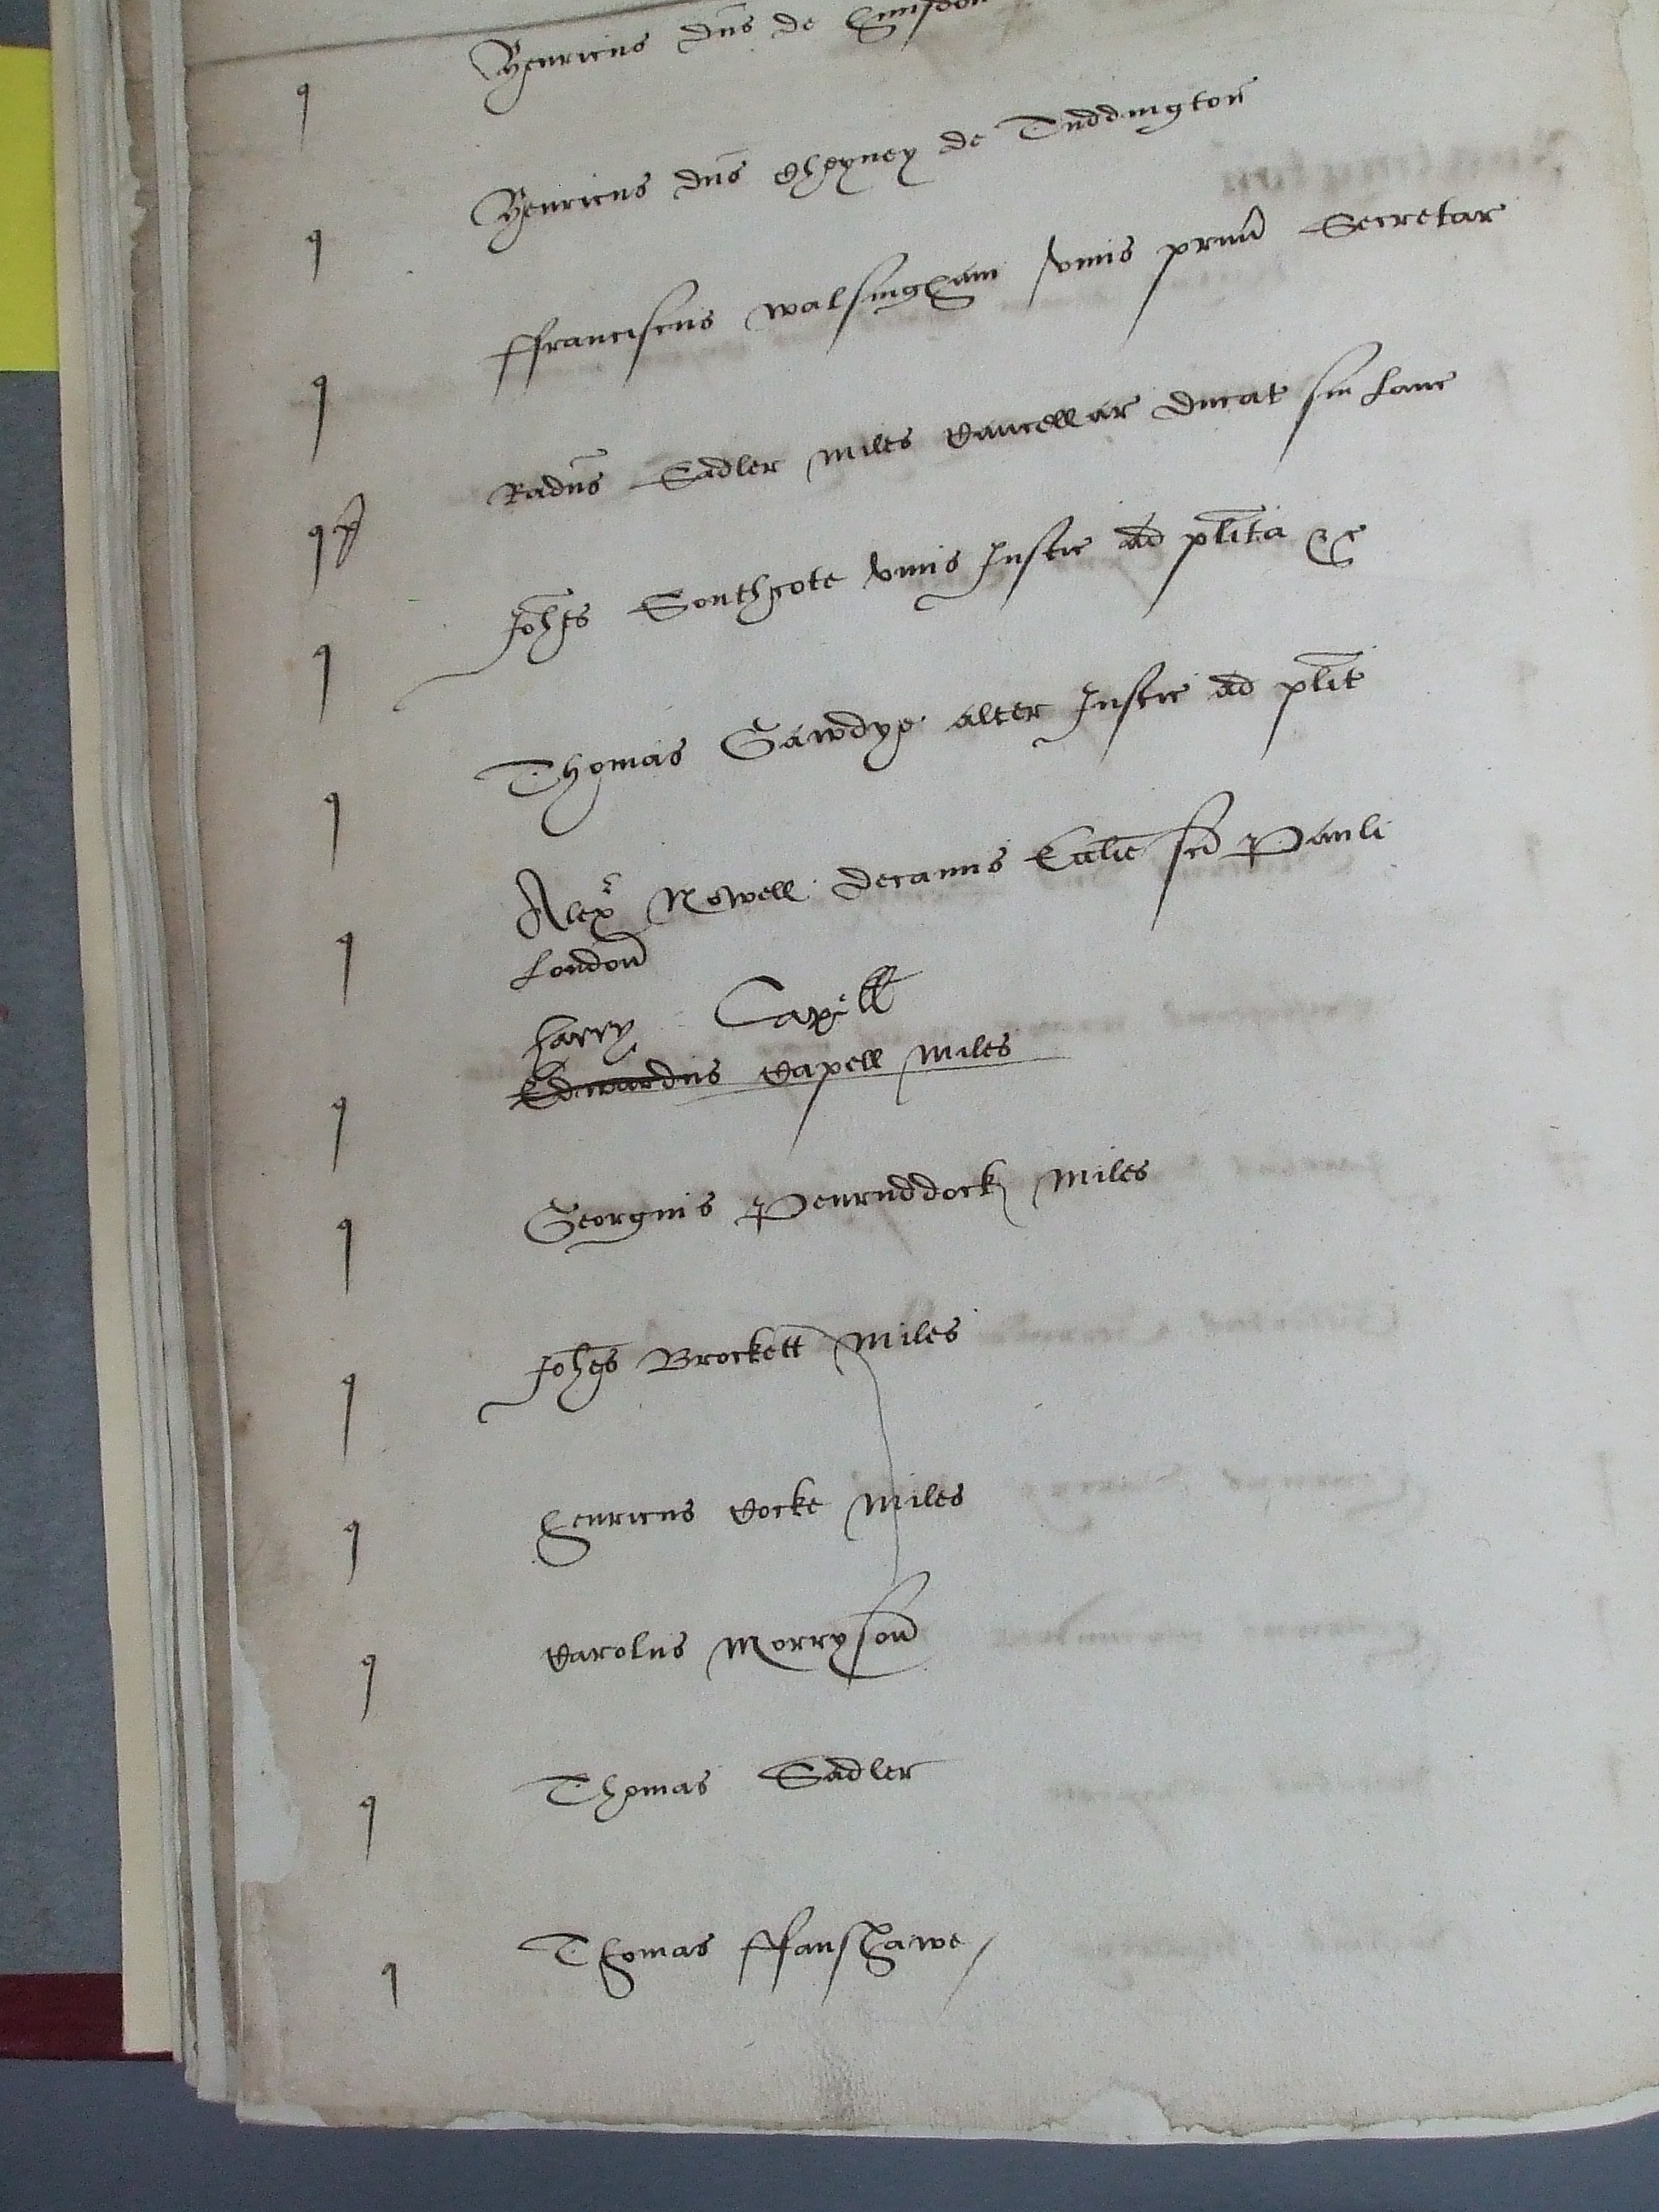 Henricus dns de Hunsdon
q Henricus dns Cheyney de Tuddington
q ffranciscus walsingham vnus primu Secretar
q Radus Sadler miles Cancellar Ducat sui Lanc
q Johes Southcote vnus Justic ad plita &c
q Thomas Gawdye alter Justic ad plit
q Alexr Nowell decanus Ecclie sci Pauli
London
Harry Capill
Edwardus Capell miles
q Georgius Penruddock miles
q Johes Brockett miles
q Henricus Cocke miles
q Carolus Morryson
q Thomas Sadler
q Thomas ffanshawe